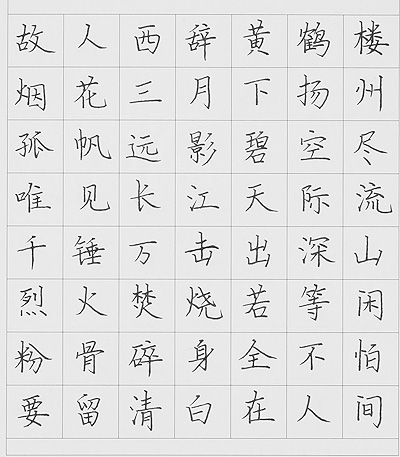 故人西辞黄鹤楼
烟花三月下扬州
孤帆远影碧空尽
唯见长江天际流
千锤万击出深山
烈火焚烧若等闲
粉骨碎身全不怕
要留清白在人间